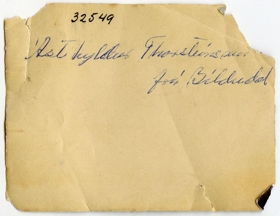 32549
Ásthyldur Thorsteinsson
frá Bíldudal